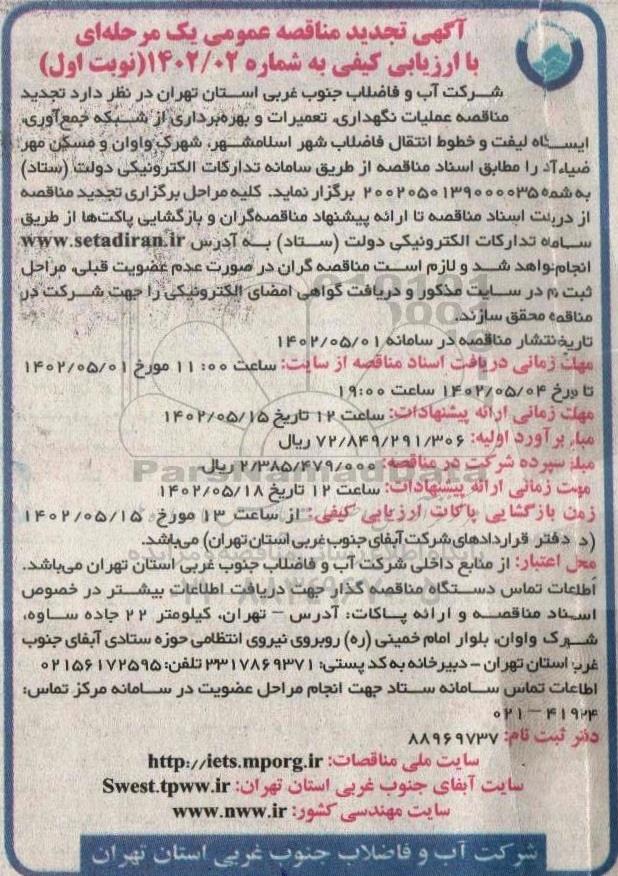 آگهی تجدید مناقصه عمومی یک مرحله‌ای
با ارزیابی کیفی به شماره ۱۴۰۲/۰۲(نوبت اول)
شرکت آب و فاضلاب جنوب غربی استان تهران در نظر دارد تجدید
مناقصه عملیات نگهداری، تعمیرات و بهره‌برداری از شبکه جمع‌آوری،
ایستگاه لیفت و خطوط انتقال فاضلاب شهر اسلامشهر، شهرک واوان و مسکن مهر
ضیاءآباد را مطابق اسناد مناقصه از طریق سامانه تدارکات الکترونیکی دولت (ستاد)
به شماره ۲۰۰۲۰۵۰۱۳۹۰۰۰۰۳۵ برگزار نماید. کلیه مراحل برگزاری تجدید مناقصه
از دریافت اسناد مناقصه تا ارائه پیشنهاد مناقصه‌گران و بازگشایی پاکت‌ها از طریق
سامانه تدارکات الکترونیکی دولت (ستاد) به آدرس www.setadiran.ir
انجام خواهد شد و لازم است مناقصه گران در صورت عدم عضویت قبلی، مراحل
ثبت نام در سایت مذکور و دریافت گواهی امضای الکترونیکی را جهت شرکت در
مناقصه محقق سازند.
تاریخ انتشار مناقصه در سامانه ۱۴۰۲/۰۵/۰۱
مهلت زمانی دریافت اسناد مناقصه از سایت: ساعت ۱۱:۰۰ مورخ ۱۴۰۲/۰۵/۰۱
تا مورخ ۱۴۰۲/۰۵/۰۴ ساعت ۱۹:۰۰
مهلت زمانی ارائه پیشنهادات: ساعت ۱۲ تاریخ ۱۴۰۲/۰۵/۱۵
مبلغ برآورد اولیه: ۷۲/۸۴۹/۲۹۱/۳۰۶ ریال
مبلغ سپرده شرکت در مناقصه: ۲/۳۸۵/۴۷۹/۰۰۰ ریال
مهلت زمانی ارائه پیشنهادات: ساعت ۱۲ تاریخ ۱۴۰۲/۰۵/۱۸
زمان بازگشایی پاکات ارزیابی کیفی: از ساعت ۱۳ مورخ ۱۴۰۲/۰۵/۱۵
(در دفتر قراردادهای شرکت آبفای جنوب غربی استان تهران) می‌باشد.
محل اعتبار: از منابع داخلی شرکت آب و فاضلاب جنوب غربی استان تهران می‌باشد.
اطلاعات تماس دستگاه مناقصه گذار جهت دریافت اطلاعات بیشتر در خصوص
اسناد مناقصه و ارائه پاکات: آدرس – تهران، کیلومتر ۲۲ جاده ساوه،
شهرک واوان، بلوار امام خمینی (ره) روبروی نیروی انتظامی حوزه ستادی آبفای جنوب
غربی استان تهران – دبیرخانه به کد پستی: ۳۳۱۷۸۶۹۳۷۱ تلفن: ۰۲۱۵۶۱۷۲۵۹۵
اطلاعات تماس سامانه ستاد جهت انجام مراحل عضویت در سامانه مرکز تماس:
۰۲۱ – ۴۱۹۳۴
دفتر ثبت نام: ۸۸۹۶۹۷۳۷
سایت ملی مناقصات: http://iets.mporg.ir
سایت آبفای جنوب غربی استان تهران: Swest.tpww.ir
سایت مهندسی کشور: www.nww.ir
شرکت آب و فاضلاب جنوب غربی استان تهران